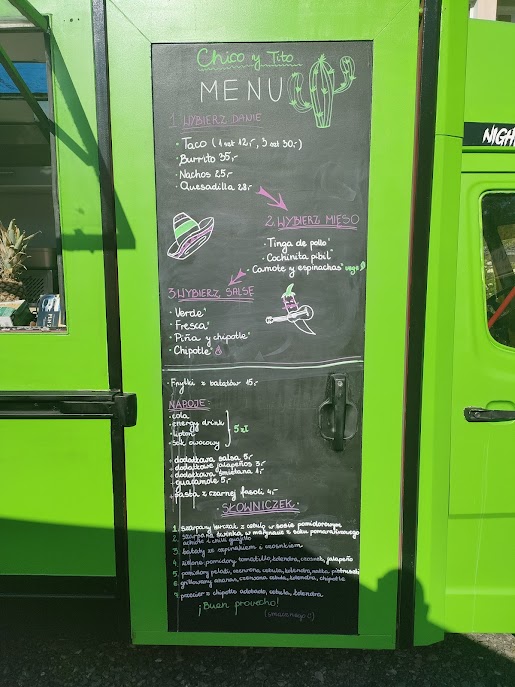 Chico y Tito
MENU
1 WYBIERZ DANIE
· Taco (1 szt 12,-, 3 szt 30,-)
· Burrito 35,-
· Nachos 25,-
· Quesadilla 28,-
2. WYBIERZ MIĘSO
· Tinga de pollo¹
· Cochinita pibil²
· Camote y espinachas³ vege
3 WYBIERZ SALSĘ
· Verde⁴
· Fresca⁵
· Piña y chipotle⁶
· Chipotle⁷
· Frytki z batatów 15,-
NAPOJE:
· cola
· energy drink
· lipton
· sok owocowy
5 zł
+ dodatkowa salsa 5,-
+ dodatkowe jalapeños 3,-
+ dodatkowa śmietana 4,-
+ guacamole 5,-
+ pasta z czarnej fasoli 4,-
· SŁOWNICZEK ·
1. szarpany kurczak z cebulą w sosie pomidorowym
2. szarpana świnka w marynacie z soku pomarańczowego
achiote i chili guajillo
3. bataty ze szpinakiem i czosnkiem
4. zielone pomidory tomatillo, kolendra, czosnek, jalapeño
5. pomidory pelati, czerwona cebula, kolendra,
6. grillowany ananas, czerwona cebula, kolendra, chipotle
7. przecier z chipotle adobado, cebula, kolendra
¡Buen provecho!
(smacznego !)
NIGH